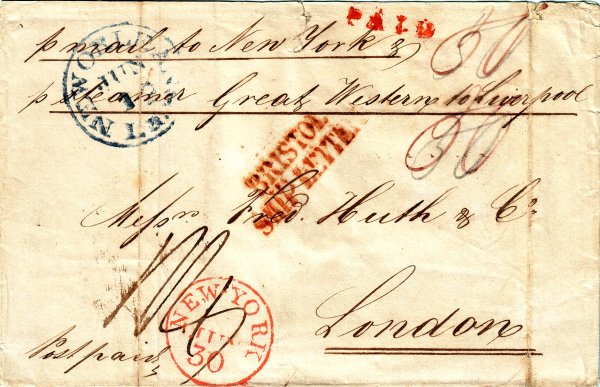 PAID
p mail to New York &
p steamer Great Western to Liverpool
NEW ORLEANS
JUN
BRISTOL
SHIP LETTER
Messrs Fred. Huth & Co
London
NEW YORK
JUN
30
Post paid